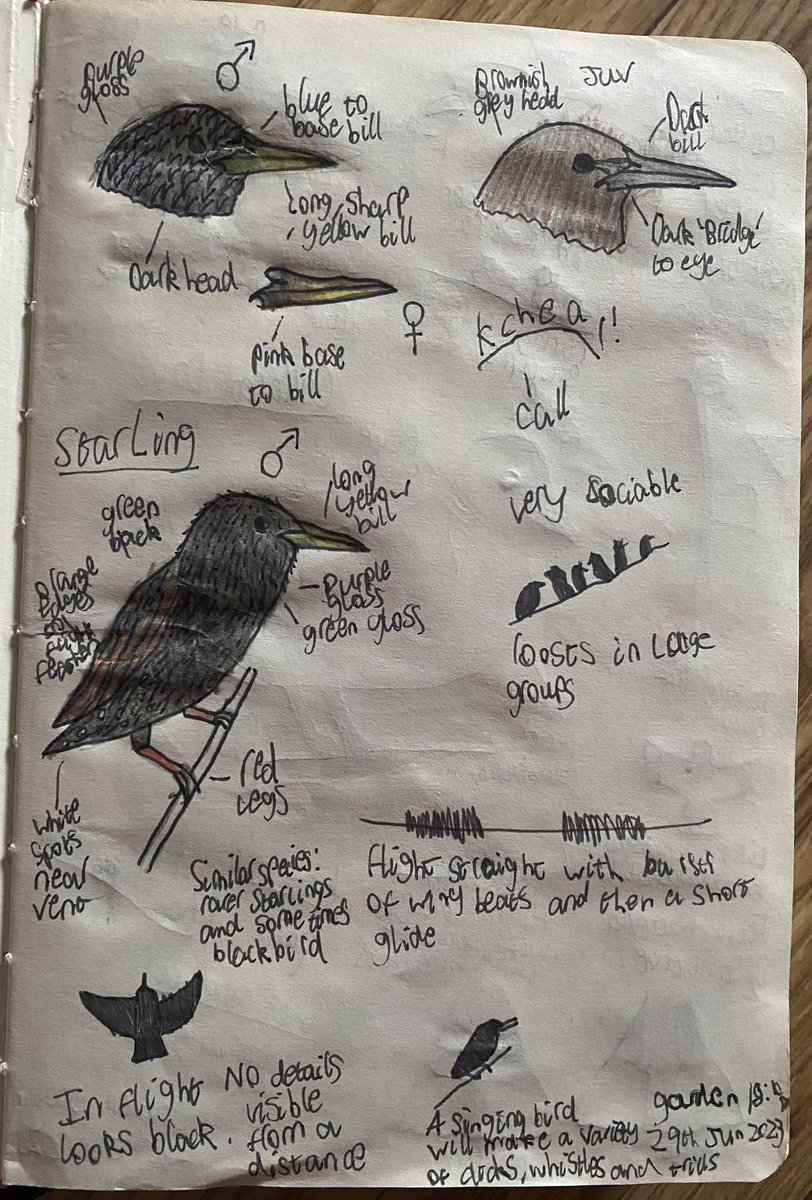 purple
gloss
blue to
base bill
long, sharp
yellow bill
Dark head
pink base
to bill
Brownish
grey head
JUV
Dark
bill
Dark 'Bridge'
to eye
kchear!
call
Starling
green
back
long
yellow
bill
purple
gloss
green gloss
orange
Edges
feathers
red
legs
white
spots
near
vent
very sociable
roosts in large
groups
Similar species:
rarer starlings
and sometimes
blackbird
flight straight with burst
of wing beats and then a short
glide
In flight
looks black.
No details
visible
from a
distance
A singing bird
will make a variety
of clicks, whistles and trills
garden
29th Jun 2023